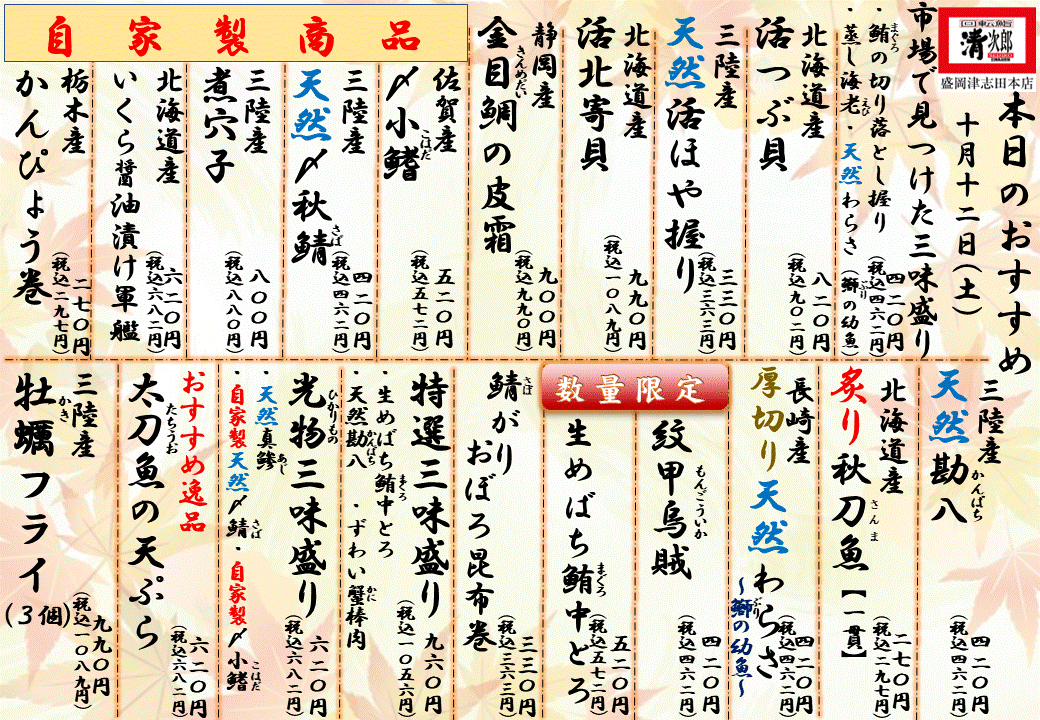 回転鮨
清次郎
盛岡津志田本店
本日のおすすめ
十月十二日(土)
市場で見つけた三味盛り
・鮪の切り落とし握り
まぐろ
・蒸し海老・天然わらさ(鰤の幼魚)
えび
ぶり
四二〇円
(税込四六二円)
北海道産
活つぶ貝
八二〇円
(税込九〇二円)
三陸産
天然活ほや握り
三三〇円
(税込三六三円)
北海道産
活北寄貝
九九〇円
(税込一〇八九円)
静岡産
金目鯛の皮霜
きんめだい
九〇〇円
(税込九九〇円)
自家製商品
佐賀産
〆小鰭
こはだ
五二〇円
(税込五七二円)
三陸産
天然〆秋鯖
さば
四二〇円
(税込四六二円)
三陸産
煮穴子
八〇〇円
(税込八八〇円)
北海道産
いくら醤油漬け軍艦
六二〇円
(税込六八二円)
栃木産
かんぴょう巻
二七〇円
(税込二九七円)
三陸産
天然勘八
かんぱち
四二〇円
(税込四六二円)
北海道産
炙り秋刀魚【一貫】
さんま
二七〇円
(税込二九七円)
長崎産
厚切り天然わらさ
～鰤の幼魚～
ぶり
四二〇円
(税込四六二円)
数量限定
紋甲烏賊
もんごういか
四二〇円
(税込四六二円)
生めばち鮪中とろ
まぐろ
五二〇円
(税込五七二円)
鯖がり
さば
おぼろ昆布巻
三三〇円
(税込三六三円)
特選三味盛り
・生めばち鮪中とろ・ずわい蟹棒肉
まぐろ
かに
・天然勘八
かんぱち
九六〇円
(税込一〇五六円)
光物三味盛り
ひかりもの
・天然真鯵
あじ
・自家製天然〆鯖・自家製〆小鰭
さば
こはだ
六二〇円
(税込六八二円)
おすすめ逸品
太刀魚の天ぷら
たちうお
六二〇円
(税込六八二円)
三陸産
牡蠣フライ(3個)
かき
九九〇円
(税込一〇八九円)